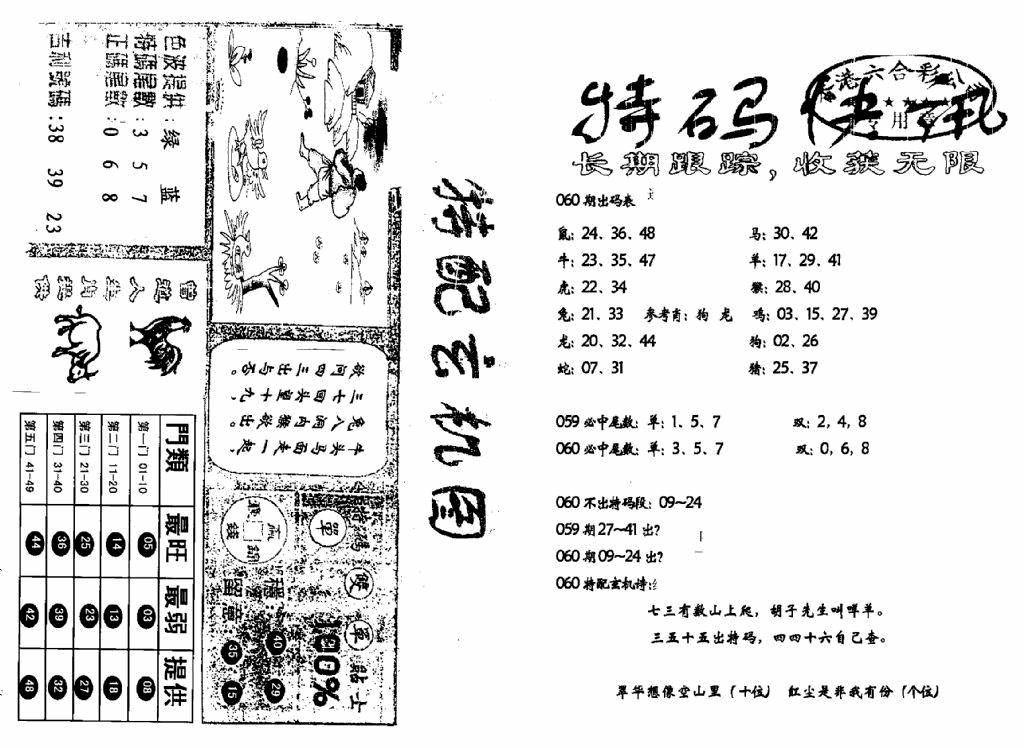 特码快讯
香港六合彩公
专用章
长期跟踪，收获无限
060期出码表
鼠：24、36、48 马：30、42
牛：23、35、47 羊：17、29、41
虎：22、34 猴：28、40
兔：21、33 参考肖：狗 龙 鸡：03、15、27、39
龙：20、32、44 狗：02、26
蛇：07、31 猪：25、37
059必中尾数：单：1、5、7 双：2、4、8
060必中尾数：单：3、5、7 双：0、6、8
060不出特码段：09～24
059期27～41出？
060期09～24出？
060特配玄机诗：
七三有数山上爬，胡子先生叫咩羊。
三五十五出特码，四四十六自己查。
翠华想像空山里（十位） 红尘是非我有份（个位）
特配玄机图
色波提供：绿 蓝
特碼尾數：3 5 7
正碼尾數：0 6 8
吉利號碼：38 39 23
牛头马面走一起，
兔入洞内猴欲出。
三七回头望十九，
欲问四三出与否。
門類 最旺 最弱 提供
第一门 01-10 05 03 08
第二门 11-20 14 13 18
第三门 21-30 25 23 27
第四门 31-40 36 39 32
第五门 41-49 44 42 48
單 雙 單
贴士
100%
留意
40 29
35 15